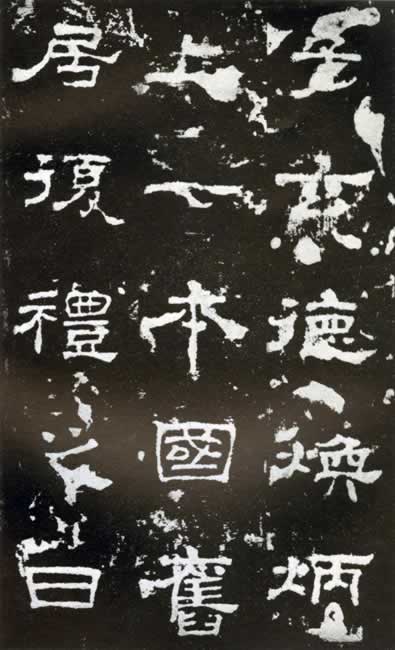 玄德煥炳
上下本國舊
居復禮之日